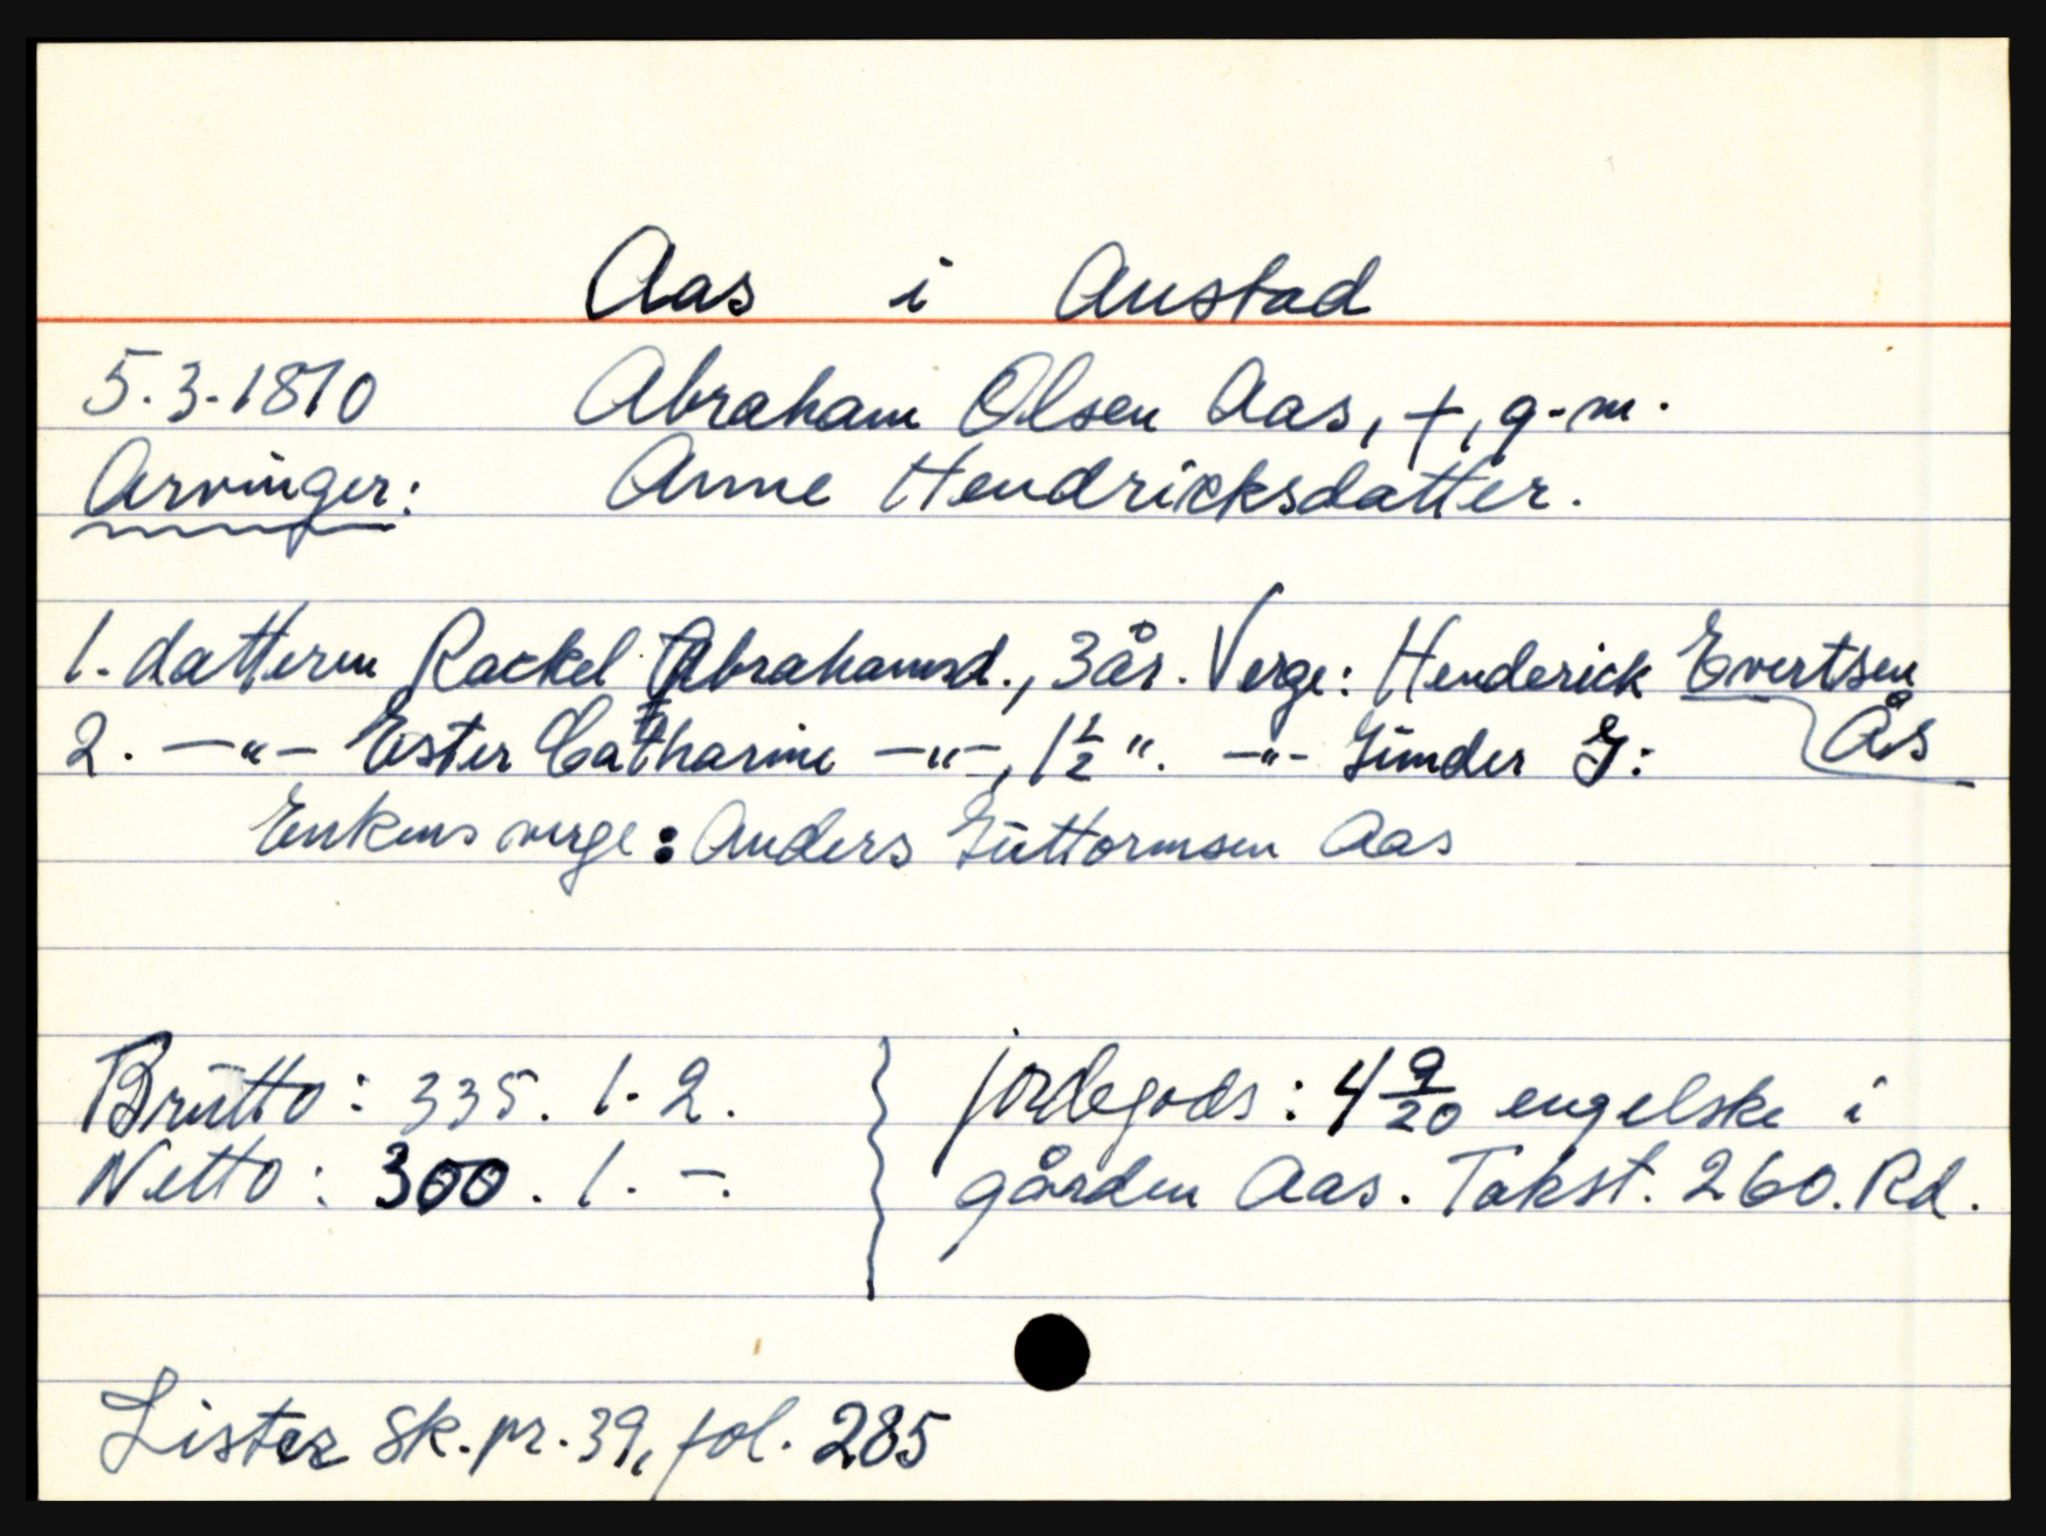 Aas i Austad
5.3.1810 Abraham Olsen Aas, +, g.m.
Arvinger: Anne Hendricksdatter.
1. datteren Rackel Abrahamsd., 3 år. Verge: Henderick Evertsen Ås
2. —"— Ester Catharine —"—, 1½ ". —"— Gunder G:
Enkens verge: Anders Guttormsen Aas
Brutto: 335. 1. 2.
Netto: 300. 1. —.
jordegods: 4 9/20 engelske i
gården Aas. Takst. 260. Rd.
Lister sk.pr. 39, fol. 285